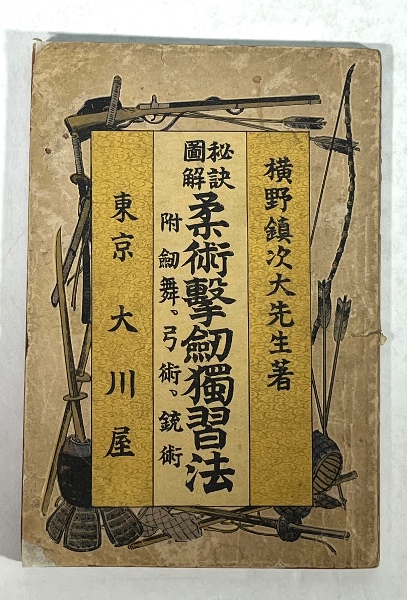 横野鎮次大先生著
秘訣
圖解
柔術擊劒獨習法
附劒舞。弓術。銃術
東京 大川屋